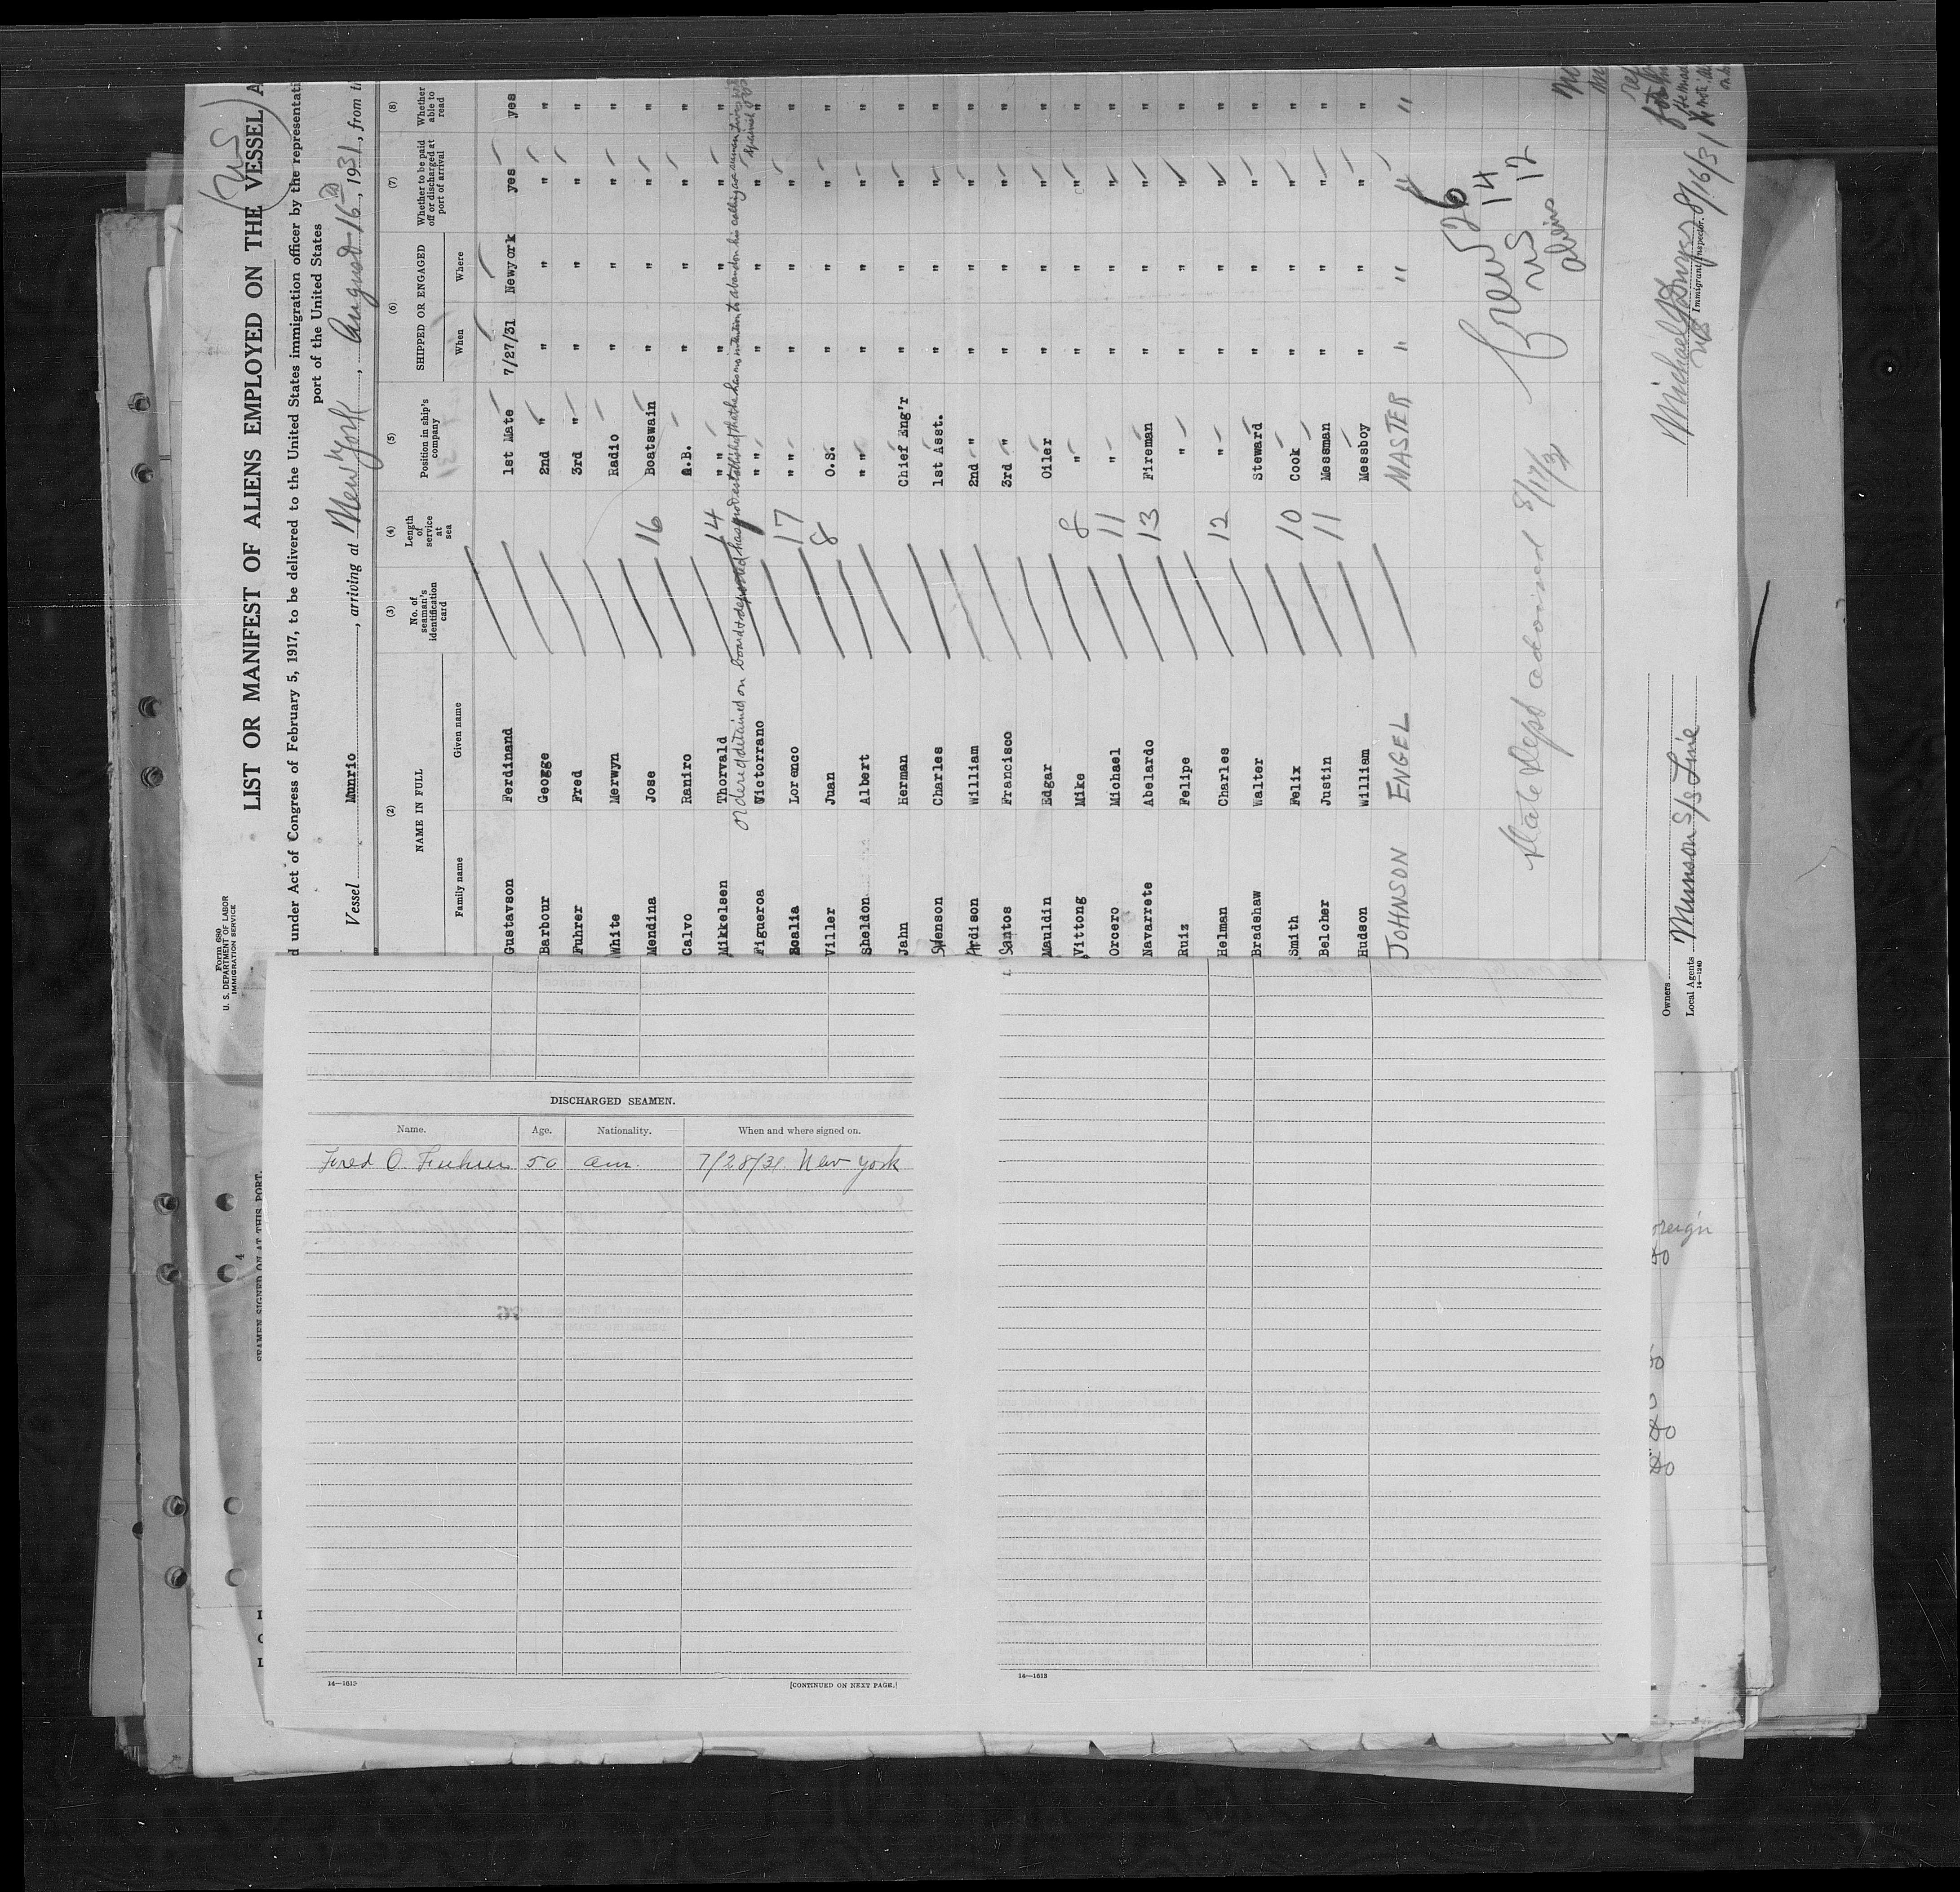 Form 680
U. S. DEPARTMENT OF LABOR
IMMIGRATION SERVICE
(US)
LIST OR MANIFEST OF ALIENS EMPLOYED ON THE VESSEL A
d under Act of Congress of February 5, 1917, to be delivered to the United States immigration officer by the representati
port of the United States
Vessel Munrio, arriving at New York, August 16th, 1931, from
(2) (3) (4) (5) (6) (7) (8)
NAME IN FULL No. of seaman's identification card Length of service at sea Position in ship's company SHIPPED OR ENGAGED Whether to be paid off or discharged at port of arrival Whether able to read
Family name Given name When Where
Gustavson Ferdinand 1st Mate 7/27/31 Newyork yes yes
Barbour Geogge 2nd " " " " "
Fuhrer Fred 3rd " " " " "
White Merwyn Radio " " " "
Mendina Jose 16 Boatswain " " " "
Calvo Raniro A.B. " " " "
Mikkelsen Thorvald 14 " " " " " "
Ordered detained on board & deported has not established that he has no intention to abandon his calling as seaman
Figueroa Victorano " " " " " " Spanish
Scalia Lorenco 17 " " " " " "
Viller Juan 8 O.S. " " " "
Sheldon Albert " " " " " "
Jahn Herman Chief Eng'r " " " "
Swenson Charles 1st Asst. " " " "
Ardison William 2nd " " " " "
Santos Francisco 3rd " " " " "
Mauldin Edgar Oiler " " " "
Vittong Mike 8 " " " " "
Orcero Michael 11 " " " " "
Navarrete Abelardo 13 Fireman " " " "
Ruiz Felipe " " " " "
Helman Charles 12 " " " " "
Bradshaw Walter Steward " " " "
Smith Felix 10 Cook " " " "
Belcher Justin 11 Messman " " " "
Hudson William Messboy " " " "
JOHNSON ENGEL MASTER " " " "
Crew 26
US 14
Aliens 12
State Dept advised 8/17/31
8/16/31
Immigrant Inspector.
Owners
Local Agents Munson S/S Line
14—1240
DISCHARGED SEAMEN.
Name. Age. Nationality. When and where signed on.
Fred O. Fuhrer 50 am. 7/28/31 New York
14—1613
[CONTINUED ON NEXT PAGE.]
14—1613
SEAMEN SIGNED ON AT THIS PORT.
4
oreign